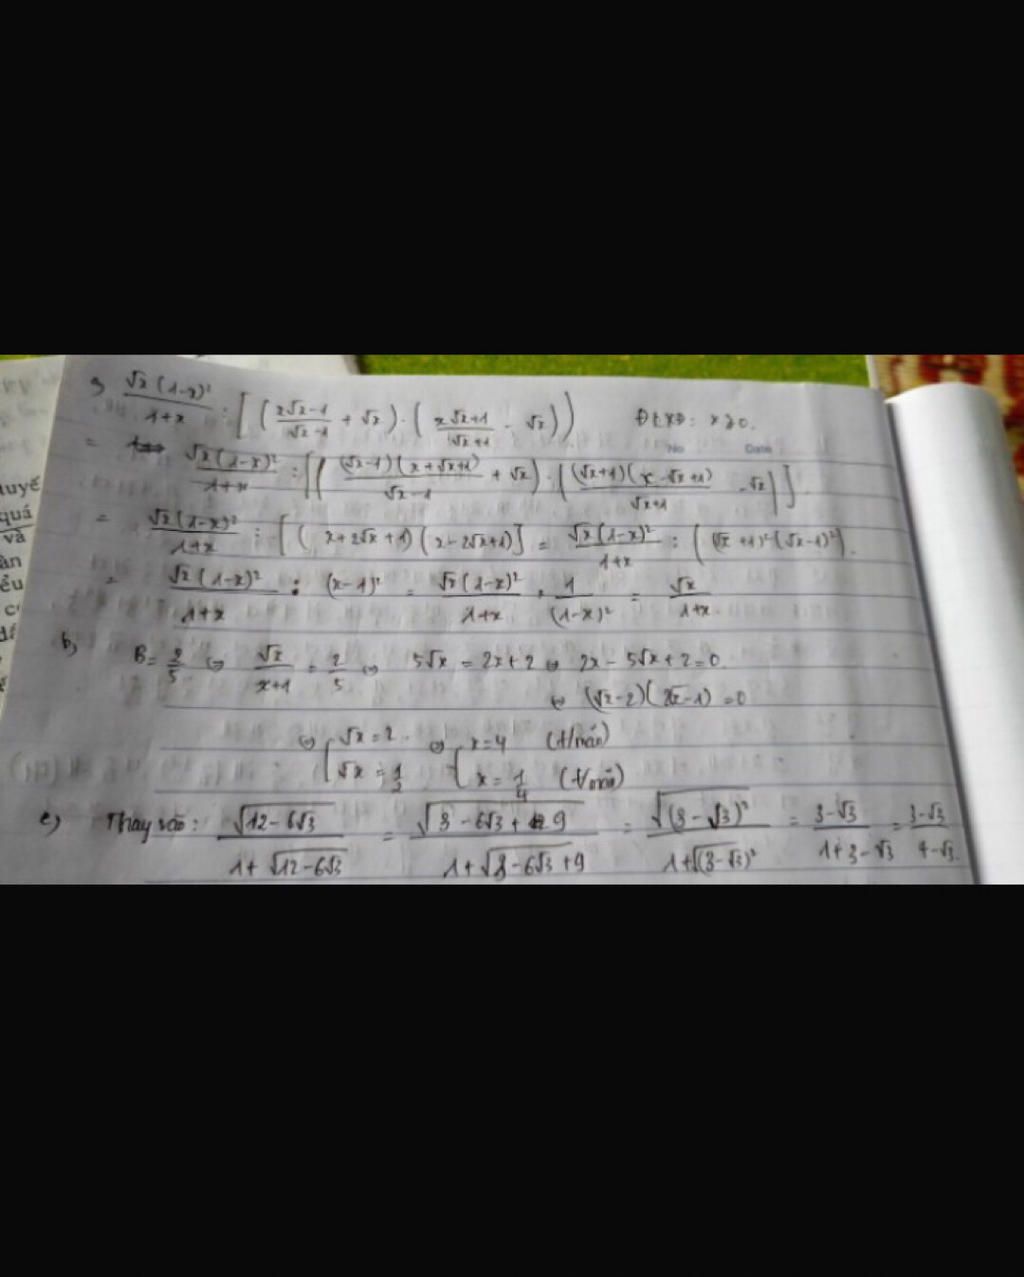 luyế
quá
và
ân
ểu
a) √x(1-x)²/(1+x) : [((x√x-1)/(√x-1) + √x).((x√x+1)/(√x+1) - √x)] ĐKXĐ: x≥0.
No Date
= √x(1-x)²/(1+x) : [((√x-1)(x+√x+1)/(√x-1) + √x).((√x+1)(x-√x+1)/(√x+1) - √x)]
= √x(1-x)²/(1+x) : [(x+2√x+1)(x-2√x+1)] = √x(1-x)²/(1+x) : ((√x+1)²(√x-1)²).
= √x(1-x)²/(1+x) : (x-1)² = √x(1-x)²/(1+x) . 1/(1-x)² = √x/(1+x)
b, B = 2/5 ⇔ √x/(x+1) = 2/5 ⇔ 5√x = 2x+2 ⇔ 2x-5√x+2=0
⇔ (√x-2)(2√x-1)=0
⇔ [√x=2 ; √x=1/2 ⇔ [x=4 (t/mãn) ; x=1/4 (t/mãn)
c) Thay vào: √(12-6√3)/(1+√(12-6√3)) = √(3-6√3+9)/(1+√(3-6√3+9)) = √((3-√3)²)/(1+√((3-√3)²)) = (3-√3)/(1+3-√3) = (3-√3)/(4-√3).